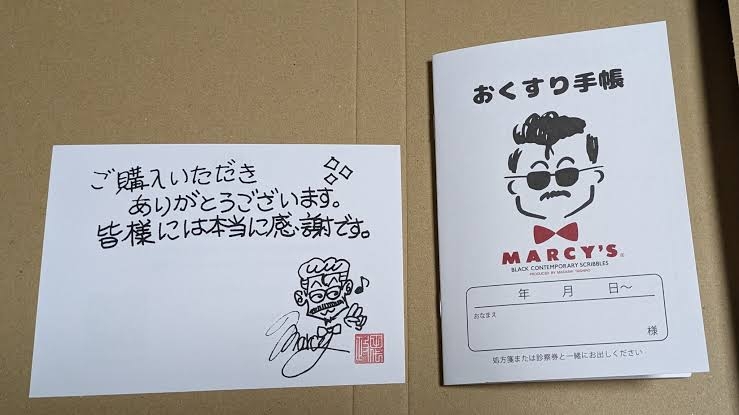 ご購入いただき
ありがとうございます。
皆様には本当に感謝です。
Marcy
おくすり手帳
MARCY'S®
BLACK CONTEMPORARY SCRIBBLES
PRODUCED BY MASASHI TASHIRO
年 月 日〜
おなまえ
様
処方箋または診察券と一緒にお出しください